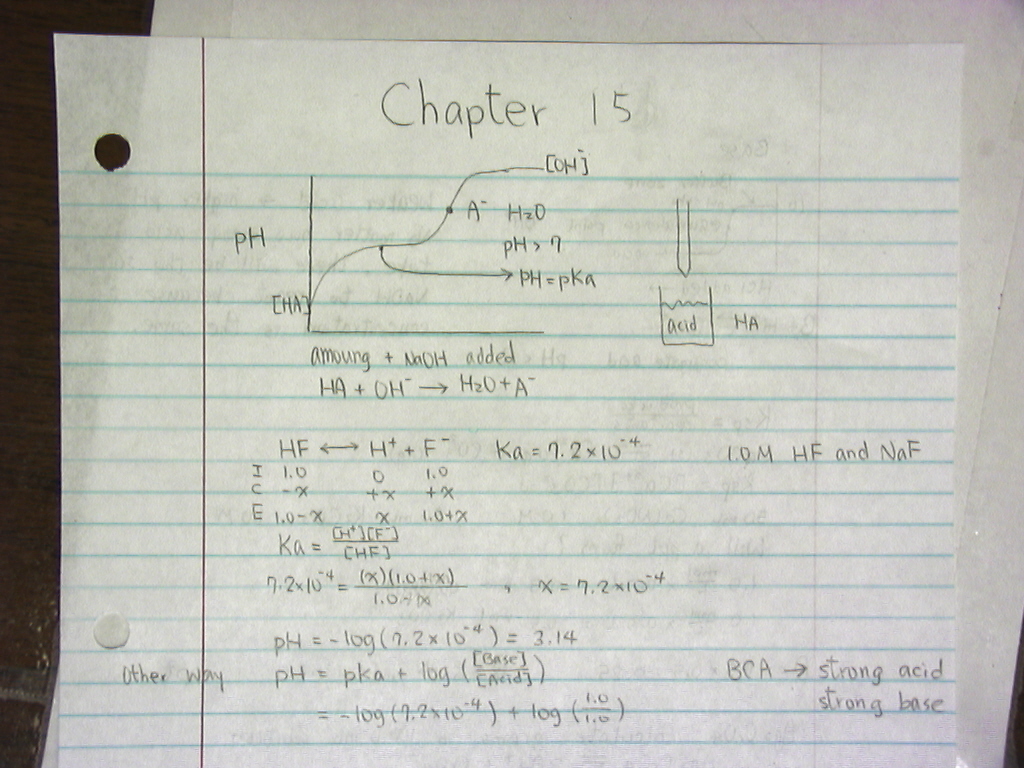 Chapter 15
[OH⁻]
A⁻ H₂O
pH
pH > 7
pH = pKa
[HA]
acid HA
amoung + NaOH added
HA + OH⁻ → H₂O + A⁻
HF ⟷ H⁺ + F⁻ Ka = 7.2×10⁻⁴ 1.0M HF and NaF
I 1.0 0 1.0
C -x +x +x
E 1.0-x x 1.0+x
Ka = [H⁺][F⁻]/[HF]
7.2×10⁻⁴ = (x)(1.0+x)/1.0-x , x = 7.2×10⁻⁴
pH = -log(7.2×10⁻⁴) = 3.14
Other way pH = pka + log ([Base]/[Acid]) BCA → strong acid
= -log(7.2×10⁻⁴) + log(1.0/1.0) strong base